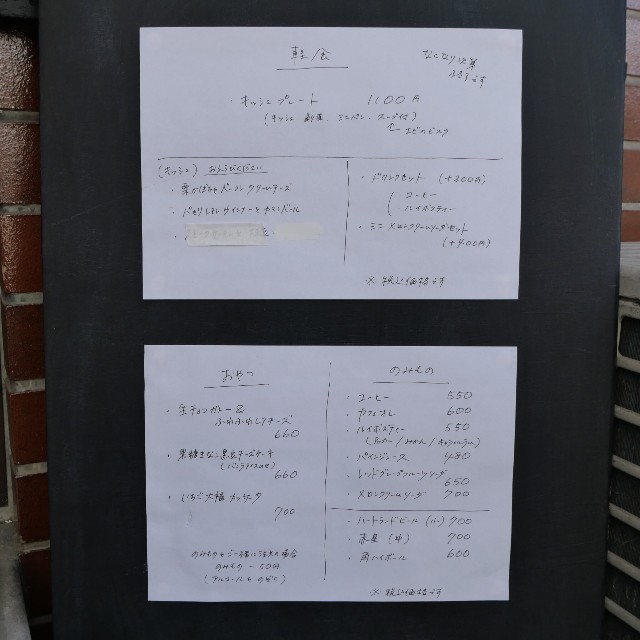 軽食
なくなり次第
終了です
・キッシュプレート 1100円
(キッシュ 副菜、ミニパン、スープ付)
(キッシュ) おえらびください
クリームチーズ
・バジルとウインナーと
・ドリンクセット (+200円)
コーヒー
ルイボスティー
・ミニメロンクリームソーダセット
(+400円)
※税込価格です
おやつ
・生チョコガトー&
ふわふわレアチーズ
660
・黒焼きなこ黒豆チーズケーキ
(バニラアイスのせ)
660
・いちご大福
700
のみものもご一緒に注文の場合
のみもの -50円
(アルコールをのぞく)
のみもの
・コーヒー 550
・カフェオレ 600
・ルイボスティー 550
・パインジュース 480
・レッドグレープフルーツソーダ
650
・メロンクリームソーダ 700
・ハートランドビール(小) 700
・赤星(中) 700
・角ハイボール 600
※税込価格です